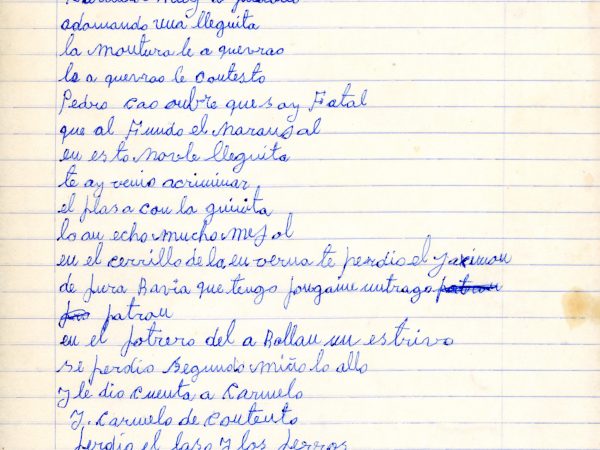 adomando una lleguita
la montura le a quevrao
le a quevrao le contesto
Pedro cao oubre que soy Fatal
que al Fundo el Naranjal
en esto noule lleguita
te ay venio acriminar
el plasa con la guinita
lo an echo mucho mejol
en el cerrillo de la en verna te perdio el
de pura Ravia que tengo pongame untrago patron
patron
en el potrero del a Rollan un estrivo
se perdio Segundo miño lo allo
y le dio cuenta a Carmelo
y. Carmelo de contento
perdio el laso y los perros